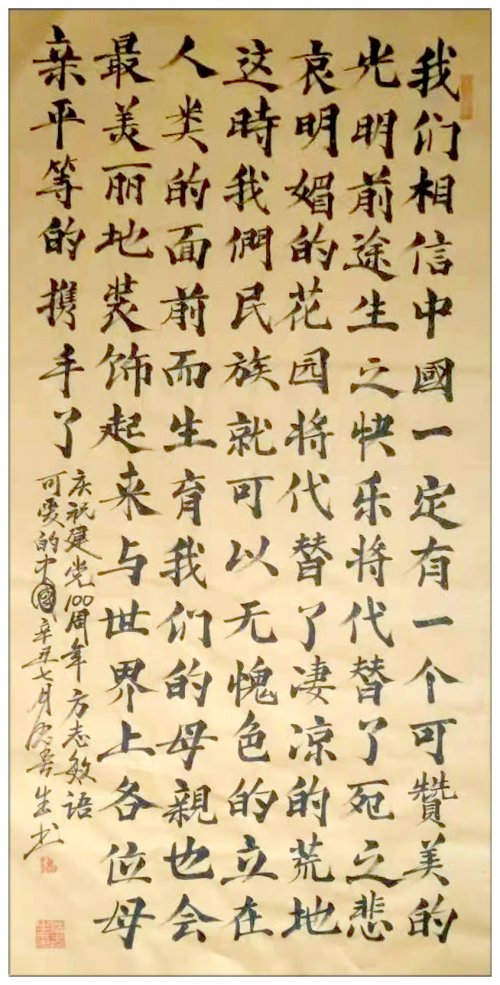 我们相信中國一定有一个可贊美的
光明前途生之快乐将代替了死之悲
哀明媚的花园将代替了淒凉的荒地
这時我們民族就可以无愧色的立在
人类的面前而生育我们的母親也会
最美丽地装饰起来与世界上各位母
亲平等的携手了
庆祝建党100周年方志敏语
可愛的中國辛丑七月生书